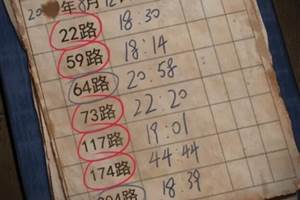 20 年8月12
22路 18:30
59路 18:14
64路 20:58
73路 22:20
117路 19:01
174路 44:44
18:39